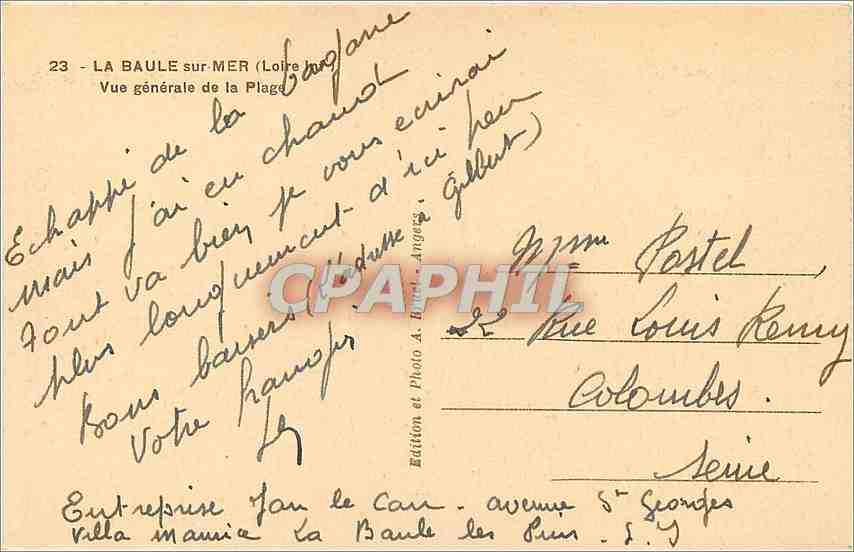 23 - LA BAULE sur MER (Loire Inf)
Vue générale de la Plage
Echappé de la bagarre
mais j'ai eu chaud
Tout va bien, je vous écrirai
plus longuement d'ici peu
Bons baisers (l'adresse à Gilbert)
Votre
CPAPHIL
Edition et Photo A. Bruel - Angers.
Mme Postel,
22 Rue Louis Remy
Colombes.
Seine
Entreprise Jan le Can - avenue St Georges
Villa La Baule les Pins - L. I